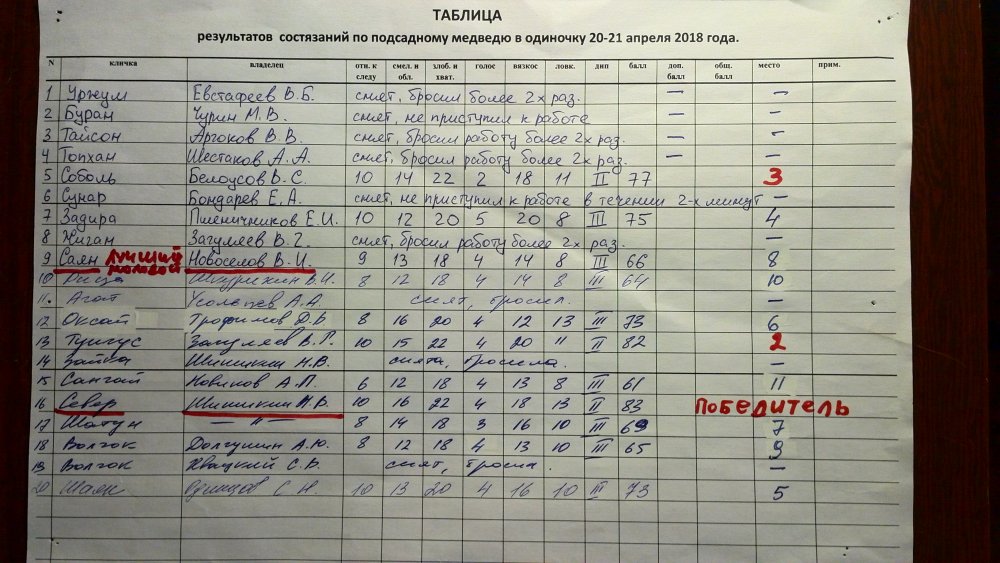 ТАБЛИЦА
результатов состязаний по подсадному медведю в одиночку 20-21 апреля 2018 года.
N кличка владелец отн. к следу смел. и обл. злоб. и хват. голос вязкос ловк. дип балл доп. балл общ. балл место прим.
1 Уржум Евстафеев В.Б. снят, бросил более 2х раз. — —
2 Буран Чурин М.В. снят, не приступил к работе — —
3 Тайсон Аргоков В.В. снят, бросил работу более 2х раз. — —
4 Топхан Шестаков А.А. снят, бросил работу более 2х раз. — —
5 Соболь Белоусов В.С. 10 14 22 2 18 11 II 77 3
6 Сунар Бондарев Е.А. снят, не приступил к работе в течении 2-х минут —
7 Задира Пшеничников Е.И. 10 12 20 5 20 8 III 75 4
8 Жиган Загуляев В.Г. снят, бросил работу более 2х раз. —
9 Саян Лучший молодой Новоселов В.И. 9 13 18 4 14 8 III 66 8
10 В.И. 8 12 18 4 14 8 III 64 10
11. Агат А.А. снят, бросил.
12 Оксай Трофимов Д.В 8 16 20 4 12 13 III 73 6
13 Тунгус Загуляев В.Г. 10 15 22 4 20 11 II 82 2
14 Зайва Шишкин Н.В. снята, бросила. —
15 Сангай Новиков А.П. 6 12 18 4 13 8 III 61 11
16 Север Шишкин Н.В. 10 16 22 4 18 13 II 83 ПОБЕДИТЕЛЬ
17 Шатун — " — 8 14 18 3 16 10 III 69 7
18 Волчок Долгушин А.Ю. 8 12 18 4 13 10 III 65 9
19 Волчок Хвацкий С.В. снят, бросил. —
20 Одинцов С.Н. 10 13 20 4 16 10 III 73 5